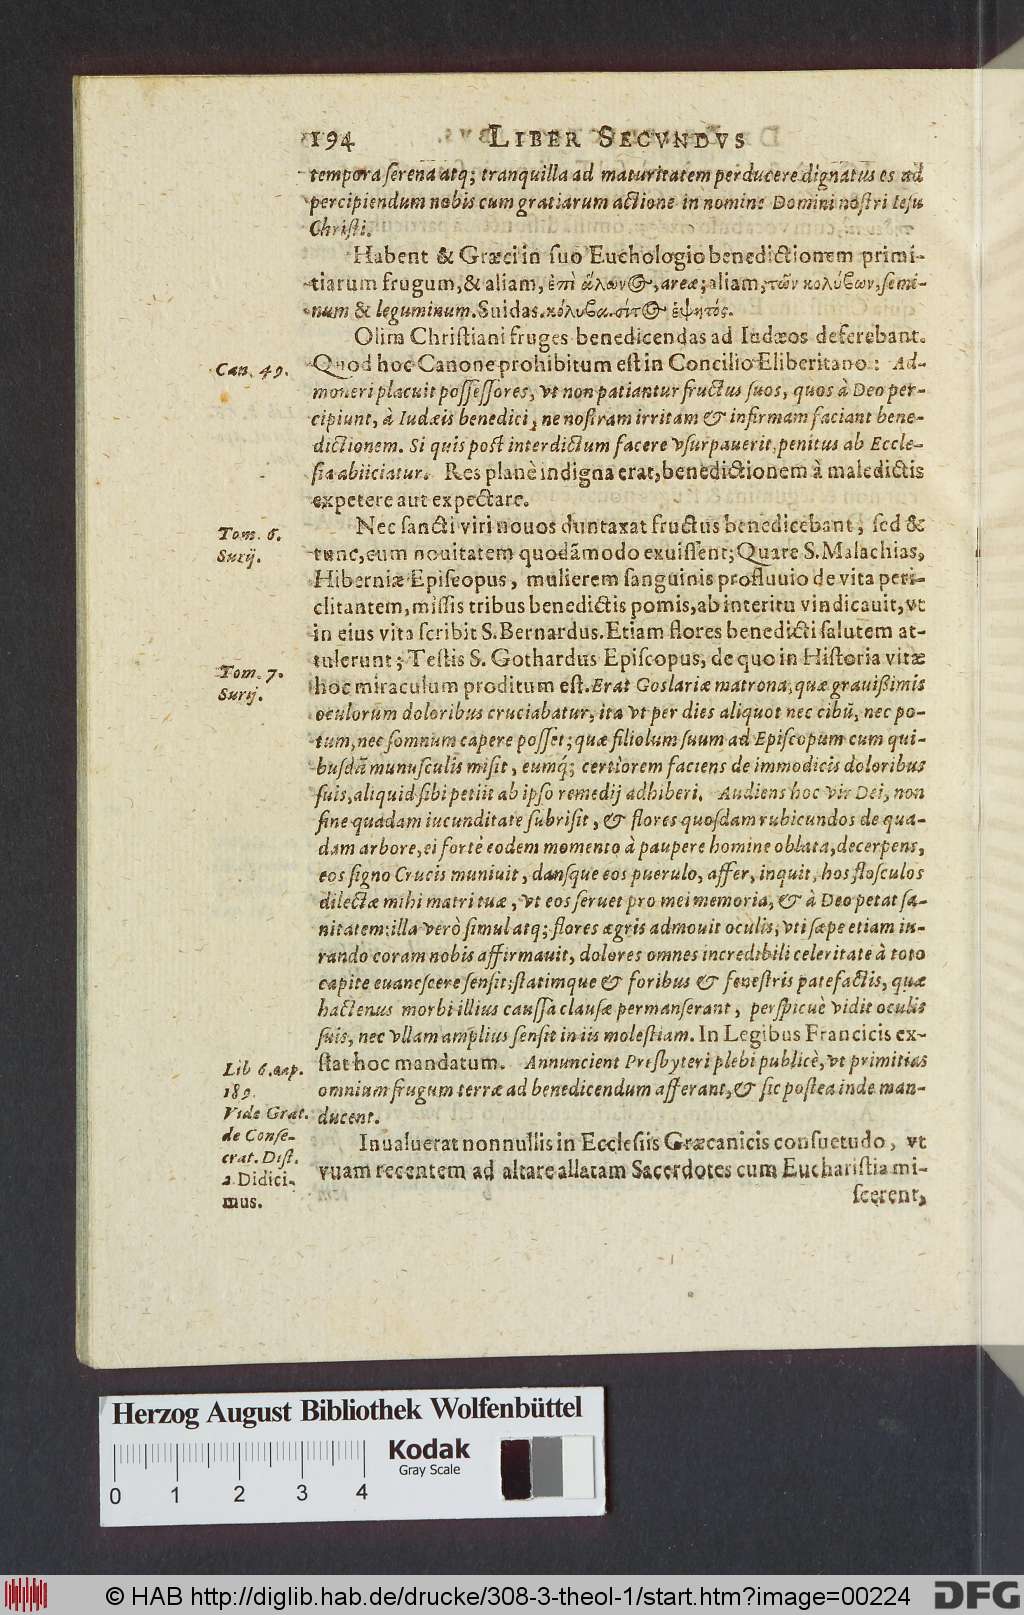 194 LIBER SECVNDVS
tempora serena atq; tranquilla ad maturitatem perducere dignatus es ad
percipiendum nobis cum gratiarum actione in nomine Domini nostri Iesu
Christi.
Habent & Græci in suo Euchologio benedictionem primi-
tiarum frugum, & aliam, ἐπὶ ἅλων⊙, areæ; aliam, τῶν κολύβων, semi-
num & leguminum. Suidas. κόλυβα. σίτ⊙ ἑψητός.
Olim Christiani fruges benedicendas ad Iudæos deferebant.
Can. 49.
Quod hoc Canone prohibitum est in Concilio Eliberitano: Ad-
moneri placuit possessores, vt non patiantur fructus suos, quos à Deo per-
cipiunt, à Iudæis benedici, ne nostram irritam & infirmam faciant bene-
dictionem. Si quis post interdictum facere vsurpauerit, penitus ab Eccle-
sia abiiciatur. Res planè indigna erat, benedictionem à maledictis
expetere aut expectare.
Tom. 6.
Surij.
Nec sancti viri nouos duntaxat fructus benedicebant, sed &
tunc, cum nouitatem quodāmodo exuissent; Quare S. Malachias,
Hiberniæ Episcopus, mulierem sanguinis profluuio de vita peri-
clitantem, missis tribus benedictis pomis, ab interitu vindicauit, vt
in eius vita scribit S. Bernardus. Etiam flores benedicti salutem at-
Tom. 7.
Surij.
tulerunt; Testis S. Gothardus Episcopus, de quo in Historia vitæ
hoc miraculum proditum est. Erat Goslariæ matrona, quæ grauißimis
oculorum doloribus cruciabatur, ita vt per dies aliquot nec cibū, nec po-
tum, nec somnum capere posset; quæ filiolum suum ad Episcopum cum qui-
busdā munusculis misit, eumq́; certiorem faciens de immodicis doloribus
suis, aliquid sibi petiit ab ipso remedij adhiberi. Audiens hoc vir Dei, non
sine quadam iucunditate subrisit, & flores quosdam rubicundos de qua-
dam arbore, ei fortè eodem momento à paupere homine oblata, decerpens,
eos signo Crucis muniuit, dansque eos puerulo, affer, inquit, hos flosculos
dilectæ mihi matri tuæ, vt eos seruet pro mei memoria, & à Deo petat sa-
nitatem: illa verò simul atq; flores ægris admouit oculis, vti sæpe etiam iu-
rando coram nobis affirmauit, dolores omnes incredibili celeritate à toto
capite euanescere sensit: statimque & foribus & fenestris patefactis, quæ
hactenus morbi illius caussa clausæ permanserant, perspicuè vidit oculis
suis, nec vllam amplius sensit in iis molestiam. In Legibus Francicis ex-
Lib 6. cap.
189.
Vide Grat.
de Conse-
crat. Dist.
2. Didici-
mus.
stat hoc mandatum. Annuncient Presbyteri plebi publicè, vt primitias
omnium frugum terræ ad benedicendum afferant, & sic postea inde man-
ducent.
Inualuerat nonnullis in Ecclesiis Græcanicis consuetudo, vt
vuam recentem ad altare allatam Sacerdotes cum Eucharistia mi-
scerent,
Herzog August Bibliothek Wolfenbüttel
Kodak
Gray Scale
0 1 2 3 4
© HAB http://diglib.hab.de/drucke/308-3-theol-1/start.htm?image=00224
DFG